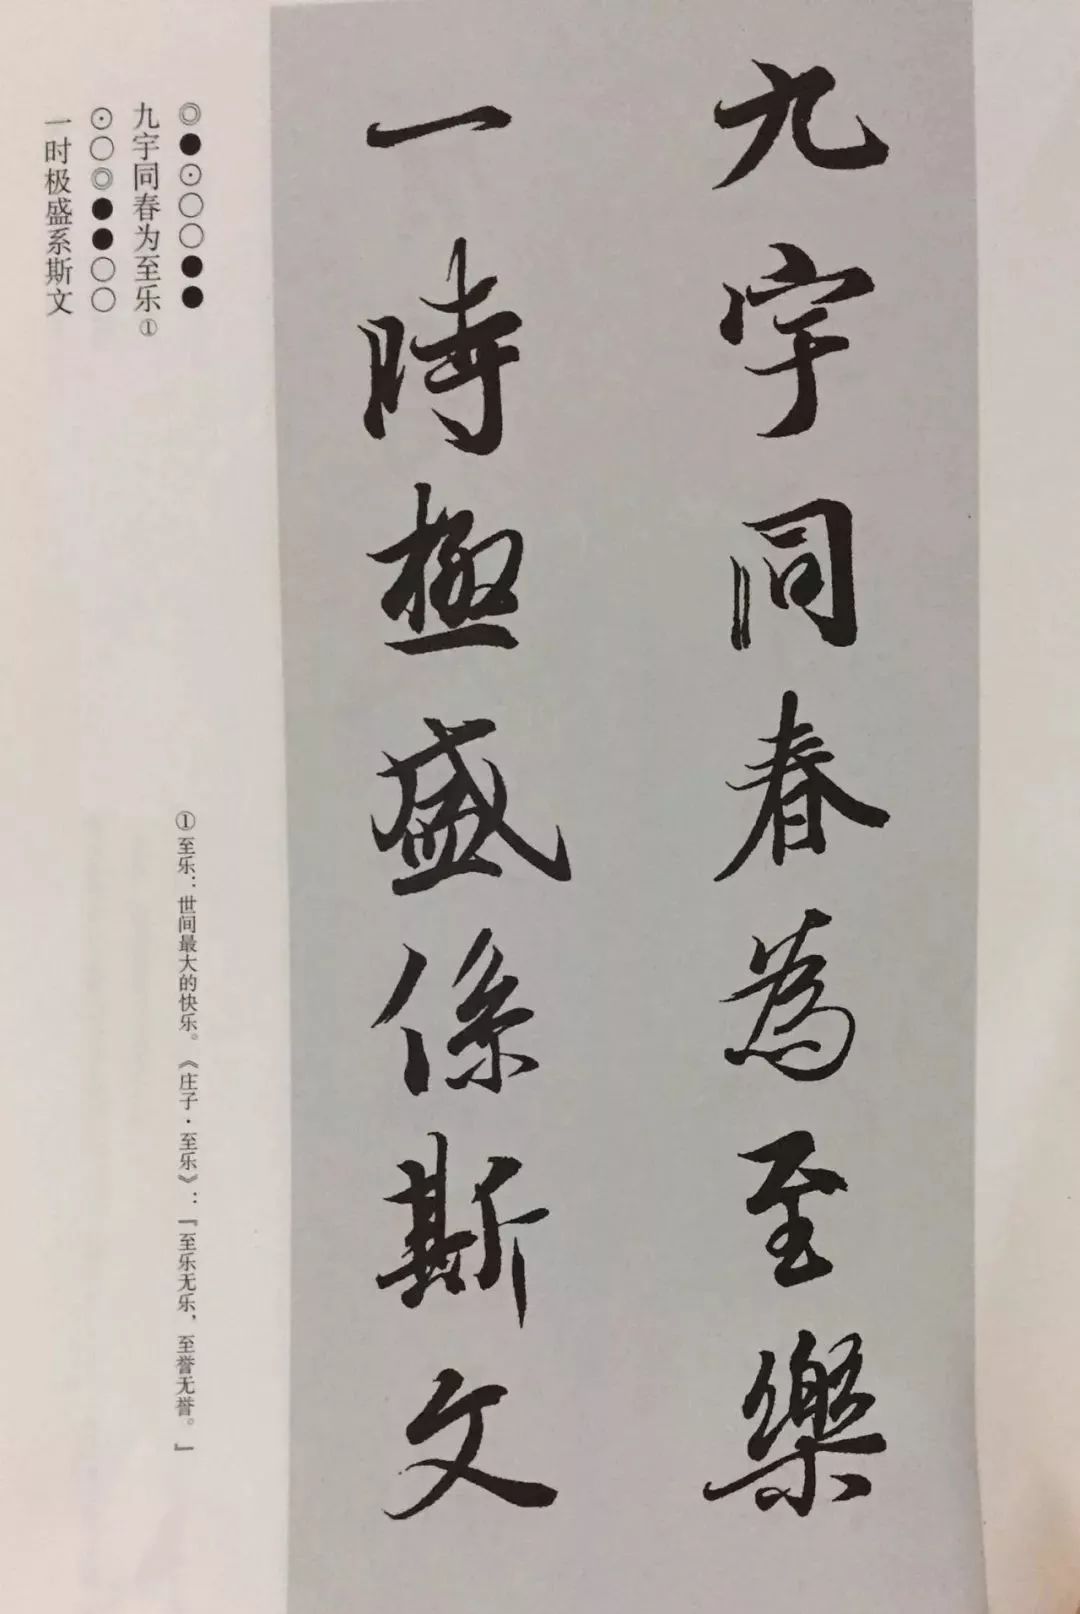 九宇同春為至樂
一時極盛係斯文
◎●⊙○○●●
九宇同春为至乐①
⊙○◎●●○○
一时极盛系斯文
①至乐：世间最大的快乐。《庄子·至乐》：『至乐无乐，至誉无誉。』